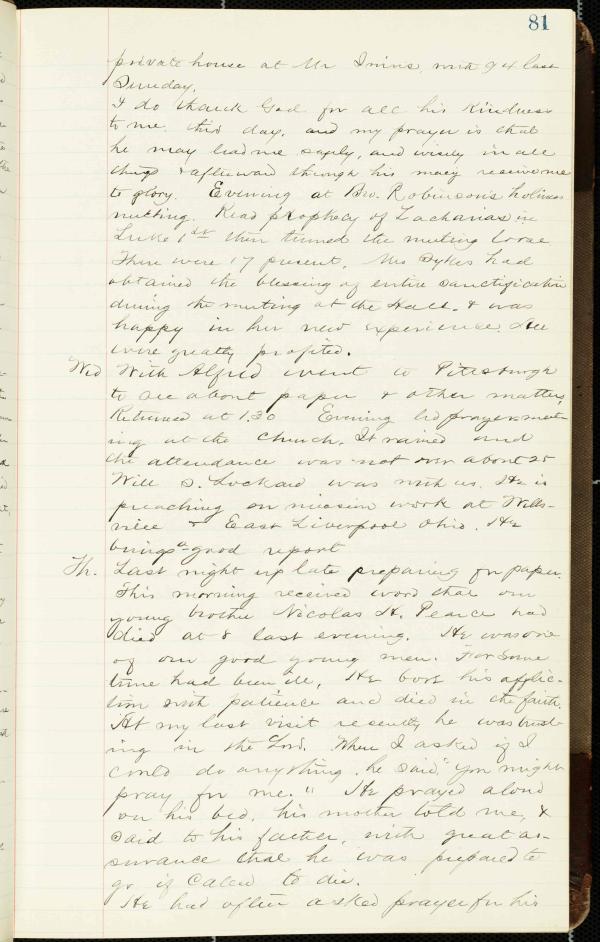 81
private house at Mr Irvins, with 94 last
Sunday.
I do thank God for all his kindness
to me this day, and my prayer is that
he may lead me safely, and wisely in all
things & afterward through his mercy receive me
to glory. Evening at Bro. Robinson's holiness
meeting. Read prophecy of Zacharias in
Luke 1st then turned the meeting loose
There were 17 present. Mrs Sykes had
obtained the blessing of entire sanctification
during the meeting at the Hall, & was
happy in her new experience. All
were greatly profited.
Wed With Alfred went to Pittsburgh
to see about paper & other matters,
Returned at 1.30 Evening led prayer meet-
ing at the church. It rained and
the attendance was not over about 25
Will S. Lockard was with us. He is
preaching on mission work at Wells-
ville & East Liverpool Ohio. He
brings a good report
Th. Last night up late preparing for paper.
This morning received word that our
young brother Nicolas H. Pearce had
died at 8 last evening. He was one
of our good young men. For some
time had been ill, He bore his afflic-
tion with patience and died in the faith.
At my last visit recently he was trust-
ing in the Lord. When I asked if I
could do anything, he said, "You might
pray for me." He prayed aloud
on his bed, his mother told me, &
said to his father, with great as-
surance that he was prepared to
go if called to die.
He had often asked prayer for his